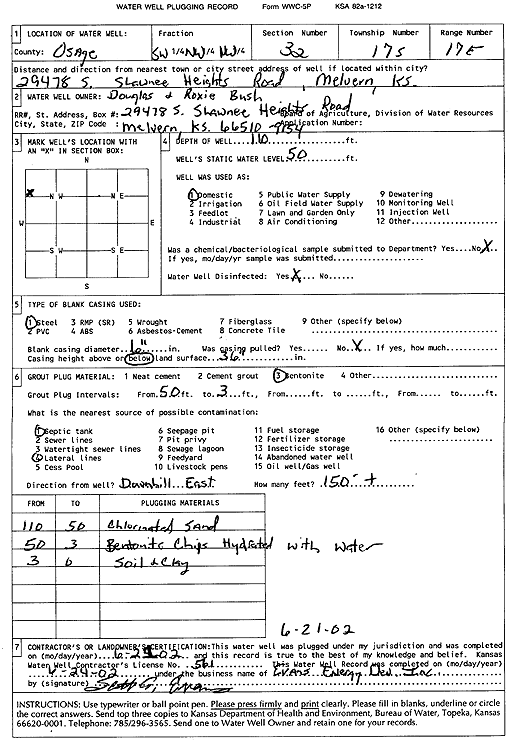 WATER WELL PLUGGING RECORD Form WWC-5P KSA 82a-1212
1 LOCATION OF WATER WELL: Fraction Section Number Township Number Range Number
County: Osage SW 1/4 NW 1/4 NW 1/4 32 17 S 17 E
Distance and direction from nearest town or city street address of well if located within city?
29478 S. Shawnee Heights Road, Melvern, KS.
2 WATER WELL OWNER: Douglas & Roxie Bush
RR#, St. Address, Box #: 29478 S. Shawnee Heights Road Board of Agriculture, Division of Water Resources
City, State, ZIP Code : Melvern, KS. 66510-9154 Application Number:
3 MARK WELL'S LOCATION WITH AN "X" IN SECTION BOX:
N
X
N W N E
W E
S W S E
S
4 DEPTH OF WELL....110....ft.
WELL'S STATIC WATER LEVEL 50 ft.
WELL WAS USED AS:
1 Domestic 5 Public Water Supply 9 Dewatering
2 Irrigation 6 Oil Field Water Supply 10 Monitoring Well
3 Feedlot 7 Lawn and Garden Only 11 Injection Well
4 Industrial 8 Air Conditioning 12 Other....................
Was a chemical/bacteriological sample submitted to Department? Yes....No X..
If yes, mo/day/yr sample was submitted....................
Water Well Disinfected: Yes X.. No......
5 TYPE OF BLANK CASING USED:
1 Steel 3 RMP (SR) 5 Wrought 7 Fiberglass 9 Other (specify below)
2 PVC 4 ABS 6 Asbestos-Cement 8 Concrete Tile ..........................
Blank casing diameter...6"....in. Was casing pulled? Yes...... No..X.. If yes, how much..........
Casing height above or below land surface...36"..............in.
6 GROUT PLUG MATERIAL: 1 Neat cement 2 Cement grout 3 Bentonite 4 Other....................
Grout Plug Intervals: From.50.ft. to..3...ft., From......ft. to ......ft., From...... to......ft.
What is the nearest source of possible contamination:
1 Septic tank 6 Seepage pit 11 Fuel storage 16 Other (specify below)
2 Sewer lines 7 Pit privy 12 Fertilizer storage ..........................
3 Watertight sewer lines 8 Sewage lagoon 13 Insecticide storage
4 Lateral lines 9 Feedyard 14 Abandoned water well
5 Cess Pool 10 Livestock pens 15 Oil well/Gas well
Direction from well? Downhill...East How many feet? .150'.+
FROM TO PLUGGING MATERIALS
110 50 Chlorinated Sand
50 3 Bentonite Chips Hydrated with Water
3 0 Soil & Clay
6-21-02
7 CONTRACTOR'S OR LANDOWNER'S CERTIFICATION: This water well was plugged under my jurisdiction and was completed
on (mo/day/year) 6-21-02 and this record is true to the best of my knowledge and belief. Kansas
Water Well Contractor's License No. 561 This Water Well Record was completed on (mo/day/year)
6-24-02 under the business name of Evans Energy Dev. Inc.
by (signature)
INSTRUCTIONS: Use typewriter or ball point pen. Please press firmly and print clearly. Please fill in blanks, underline or circle
the correct answers. Send top three copies to Kansas Department of Health and Environment, Bureau of Water, Topeka, Kansas
66620-0001. Telephone: 785/296-3565. Send one to Water Well Owner and retain one for your records.